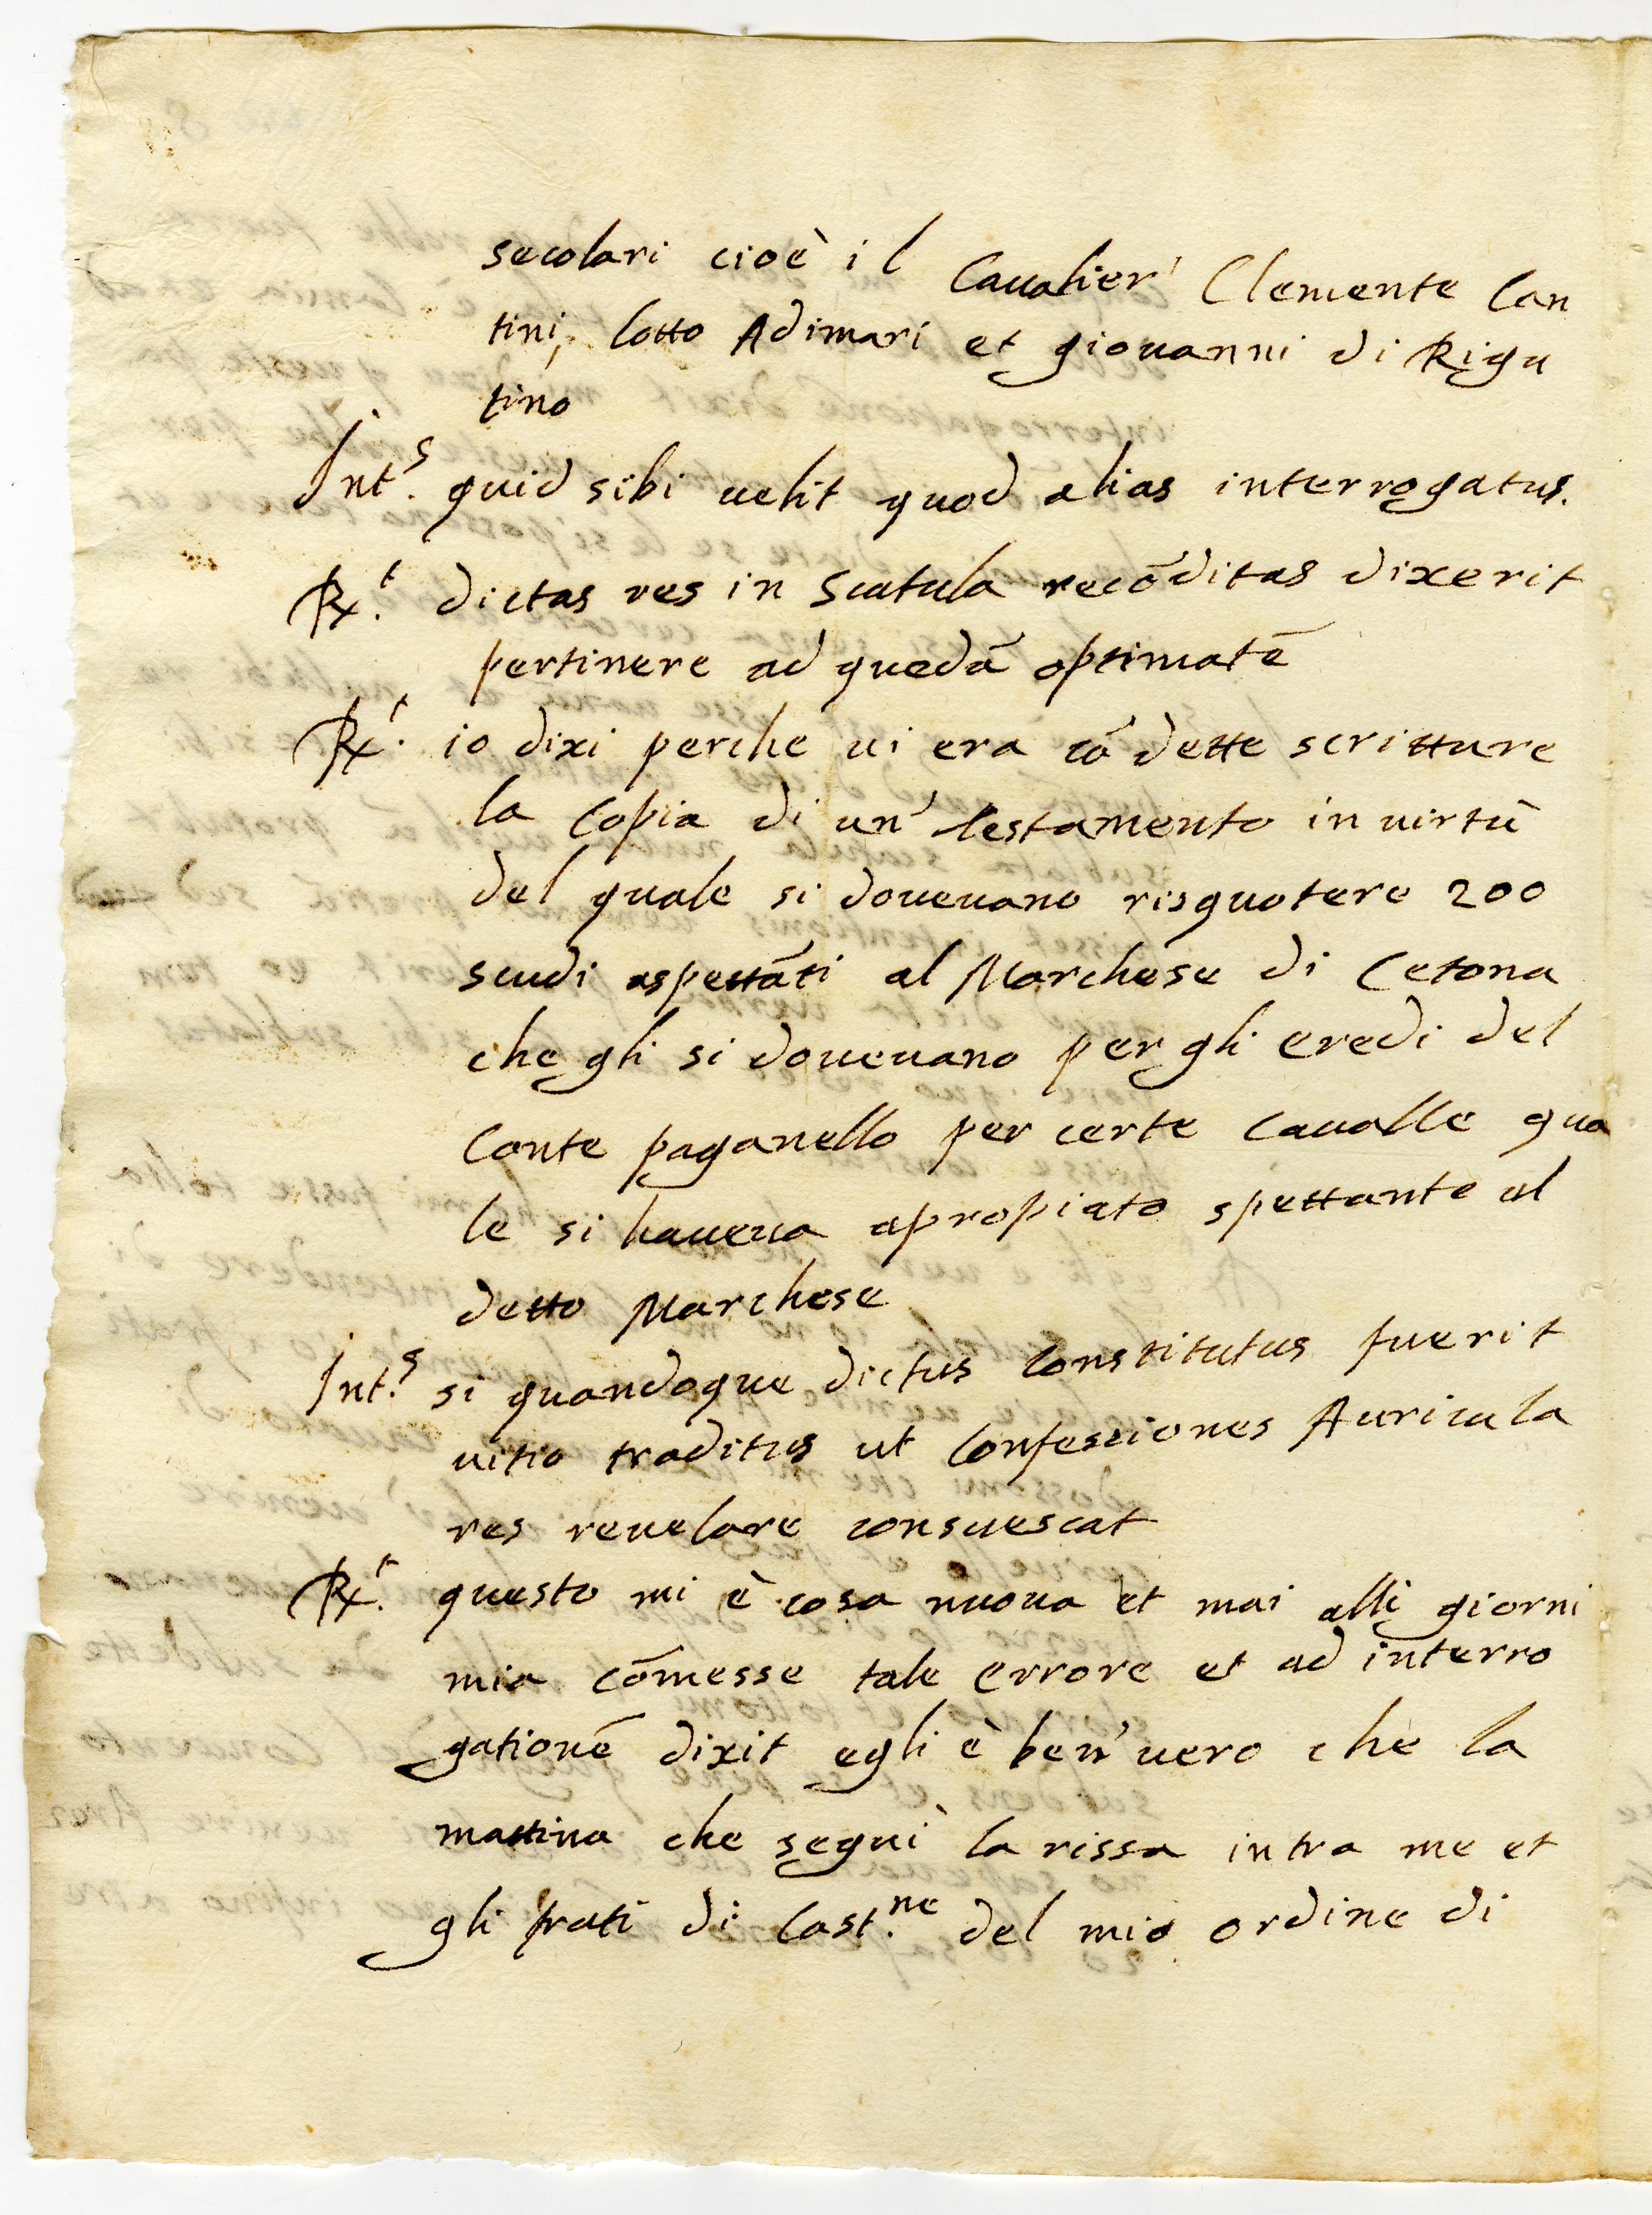 secolari cioè il Cavalier' Clemente Can
tini, lotto Adimari et giouanni di Rigu
tino
Int.s quid sibi uelit quod alias interrogatus.
Rx.t dictas res in Scatula recōditas dixerit
pertinere ad quedā optimatē
Rx.t io dixi perche ui era cō dette scritture
la Copia di un' testamento in uirtù
del quale si doueuano risquotere 200
scudi aspettāti al Marchese di Cetona
che gli si doueuano per gli eredi del
Conte paganello per certe Caualle qua
le si haueua apropiato spettante al
detto Marchese
Int.s si quandoque dictus Constitutus fuerit
uitio traditus ut Confessiones Auricula
res reuelare consuescat
Rx.t questo mi è cosa nuoua et mai alli giorni
mia cōmesse tale errore et ad interro
gationē dixit egli è ben' uero che la
mattina che seguì la rissa intra me et
gli frati di Cast.ne del mio ordine di